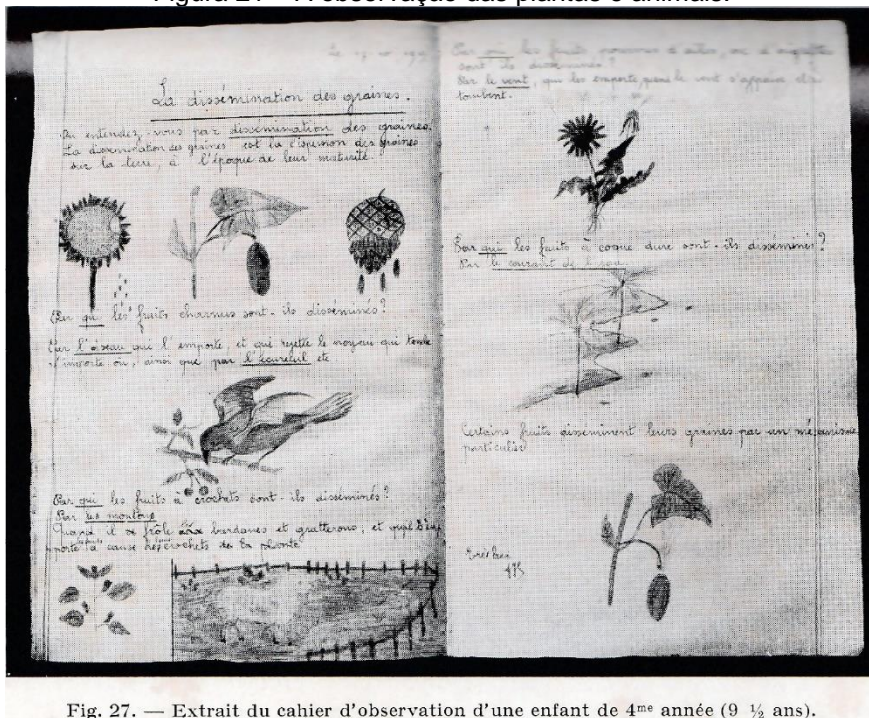 La dissémination des graines.
Qu'entendez-vous par dissémination des graines.
La dissémination des graines est la des graines
sur la terre, à l'époque de leur maturité.
Par qui les fruits charnus sont-ils disséminés?
Par l'oiseau qui l'emporte, et qui rejette le noyau qui tombe
n'importe où, ainsi que par l'écureuil etc
Par qui les fruits à crochets sont-ils disséminés?
Par les moutons
Quand il se frôle aux bardanes et gratterons, et qu'il
porte à cause des crochets de la plante
Par les fruits d'ailes, ou d'aigrettes
sont ils disséminés?
Par le vent, qui les emporte, quand le vent s'apaise
tombent.
Par qui les fruits à coque dure sont-ils disséminés?
Par le courant de l'eau
Certains fruits disséminent leurs graines par un mécanisme
particulier
Fig. 27. — Extrait du cahier d'observation d'une enfant de 4me année (9 ½ ans).